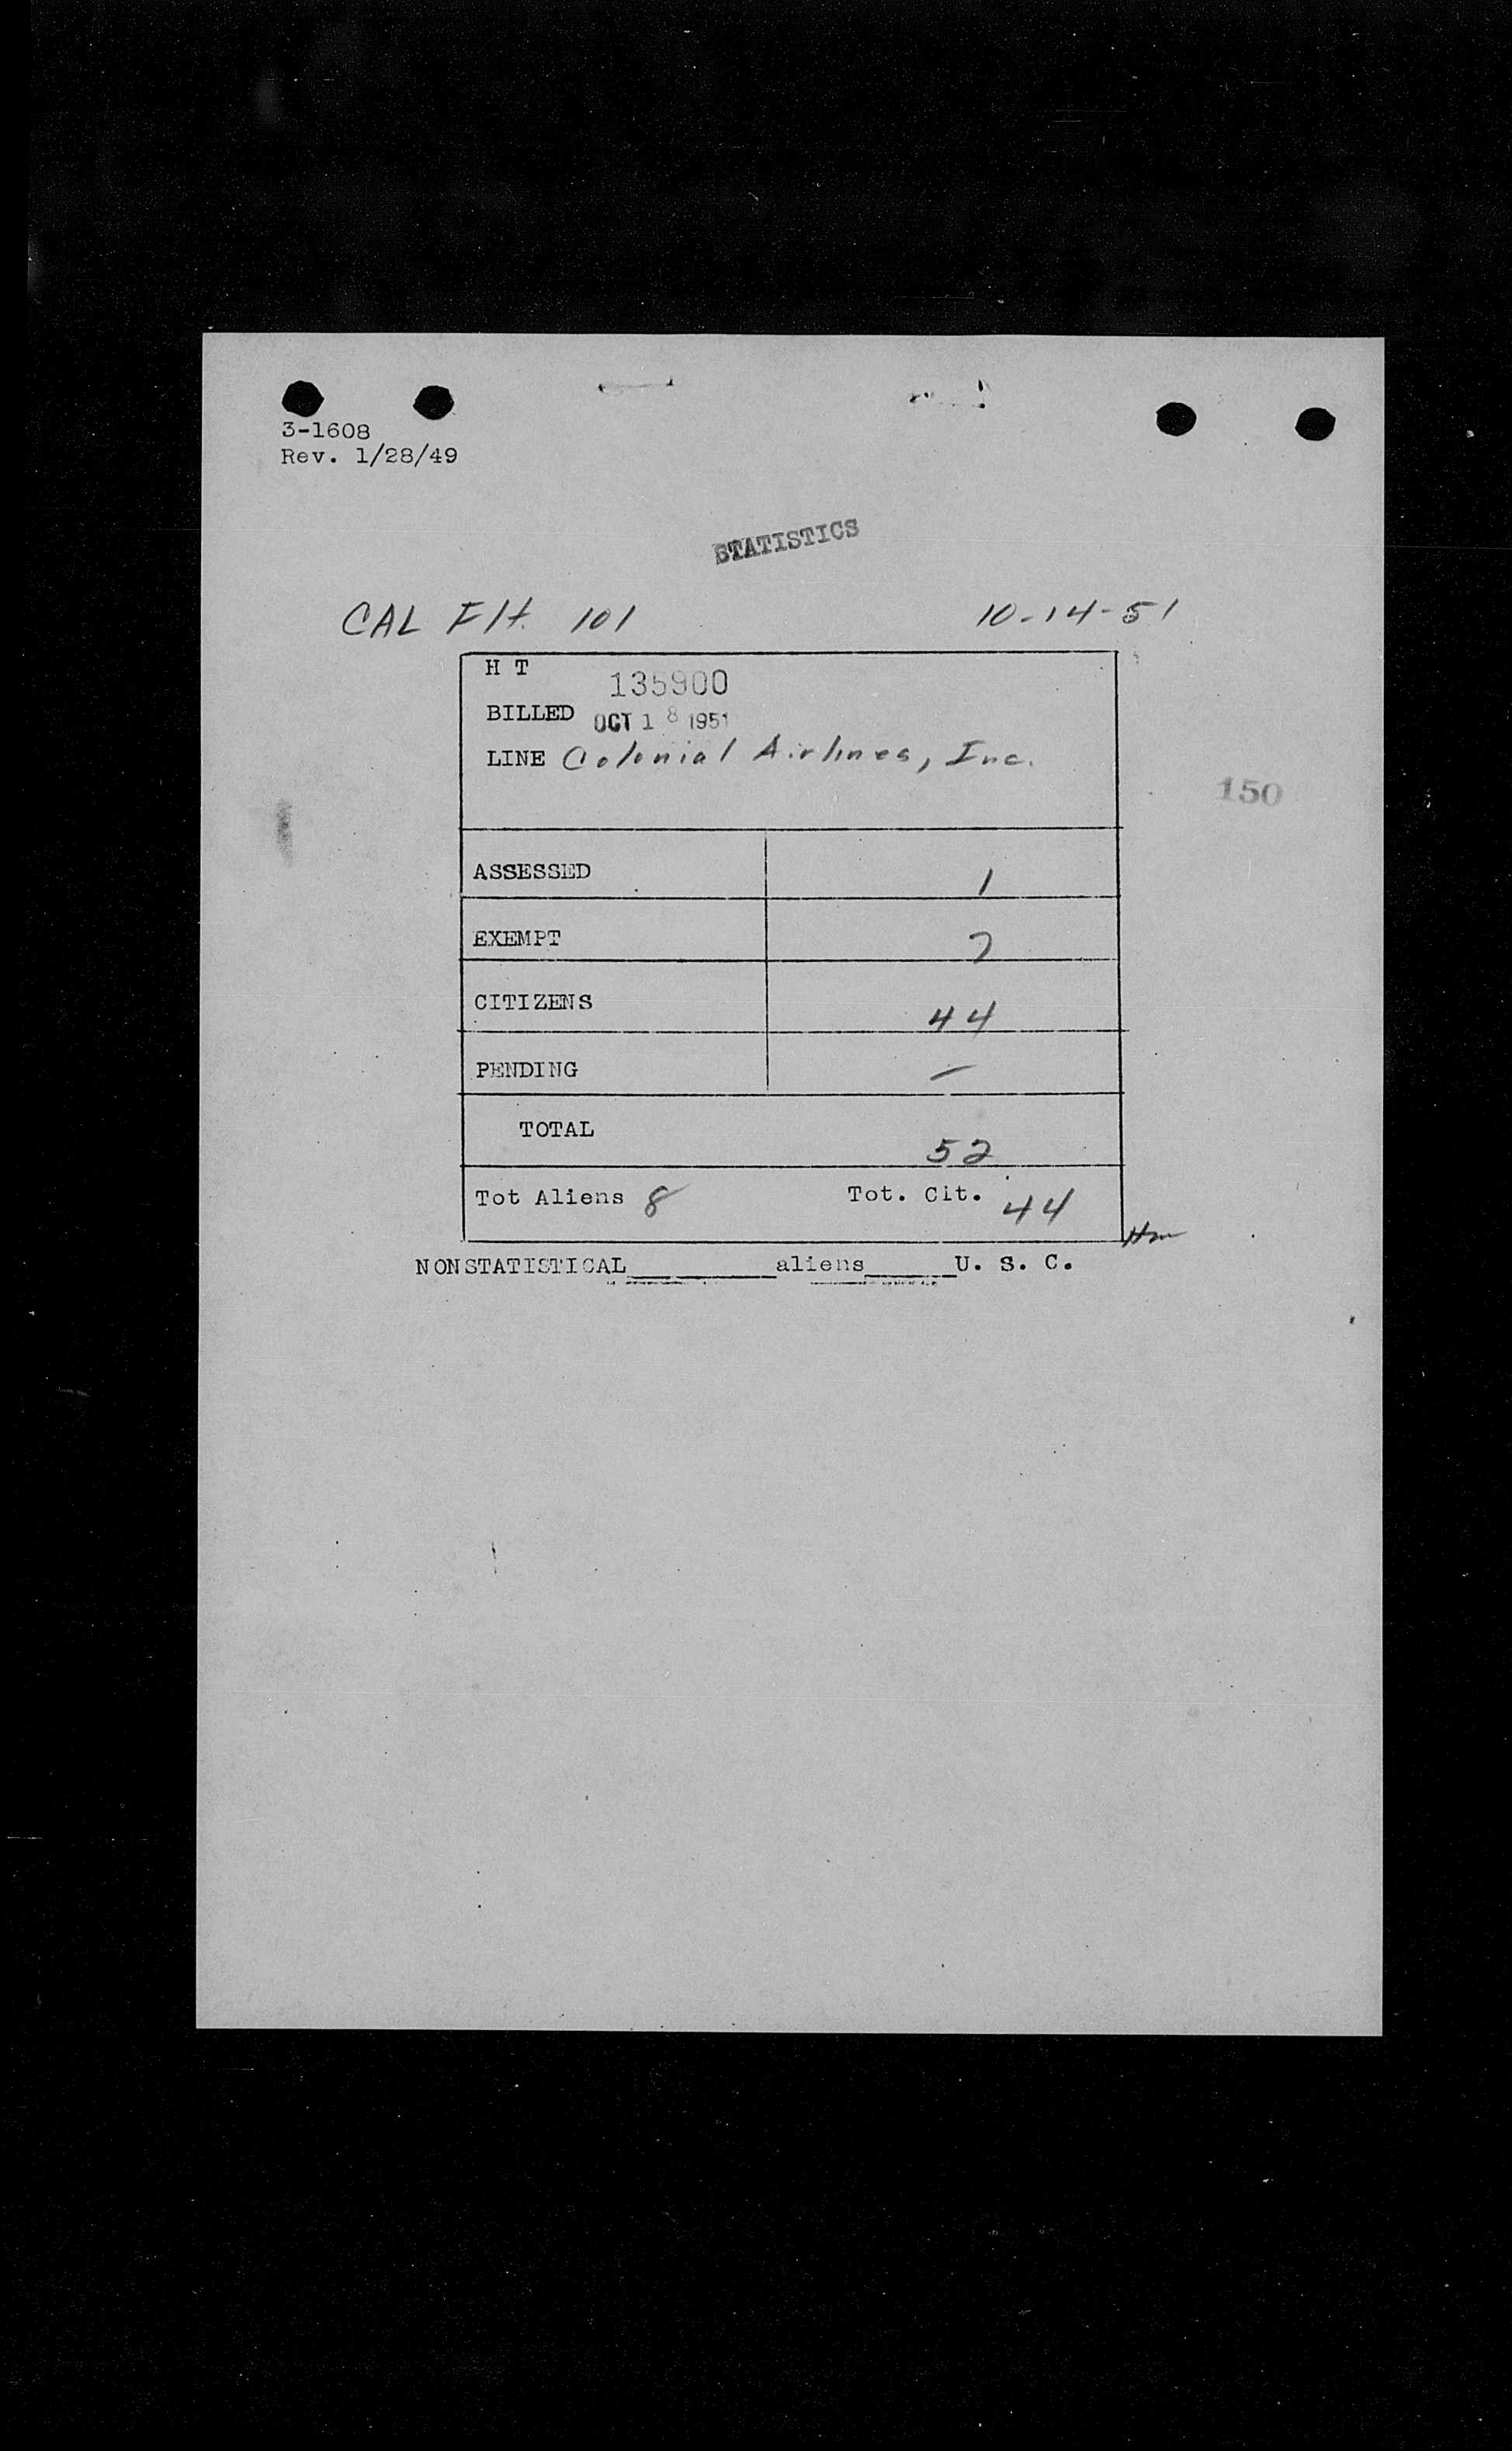 3-1608
Rev. 1/28/49
STATISTICS
CAL Flt. 101 10-14-51
H T 135900
BILLED OCT 18 1951
LINE Colonial Airlines, Inc.
150
ASSESSED 1
EXEMPT 7
CITIZENS 44
PENDING —
TOTAL 52
Tot Aliens 8 Tot. Cit. 44
NONSTATISTICAL__________aliens______U. S. C.